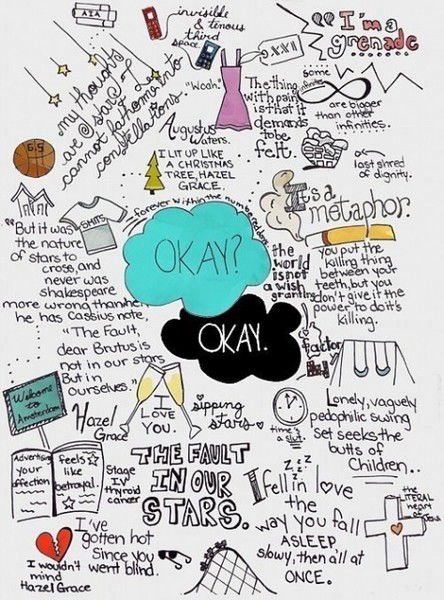 AIA
invisible
& tenous
third
space
"I'm a
grenade
my thoughts
are @ stars I
cannot fathom into
constellations.
XXVI
"Woah."
The thing
with pain
is that it
demands
to be
felt.
some
infinities
are bigger
than other
infinities.
Augustus
Waters.
I LIT UP LIKE
A CHRISTMAS
TREE, HAZEL
GRACE.
last shred
of dignity.
It's a
metaphor.
SMITS
forever within the numbered days
OKAY?
OKAY.
"But it was
the nature
of stars to
cross, and
never was
shakespeare
more wrong than when
he has Cassius note,
"The Fault,
dear Brutus is
not in our stars
But in
ourselves."
the
world
is not
a wish
granting
factory
you put the
killing thing
between your
teeth, but you
don't give it the
power to do it's
killing.
Welcome
to
Amsterdam
I
LOVE
YOU.
sipping
stars
time's
a slut.
Lonely, vaguely
pedophilic swing
set seeks the
butts of
Children..
Hazel
Grace
Advertising
your
affection
feels
like
betrayal.
Stage
IV
thyroid
cancer
THE FAULT
IN OUR
STARS.
z z z
I fell in love
the
way you fall
ASLEEP
slowly, then all at
ONCE.
the
LITERAL
heart
of
Jesus
I wouldn't
mind
Hazel Grace
I've
gotten hot
Since you
went blind.